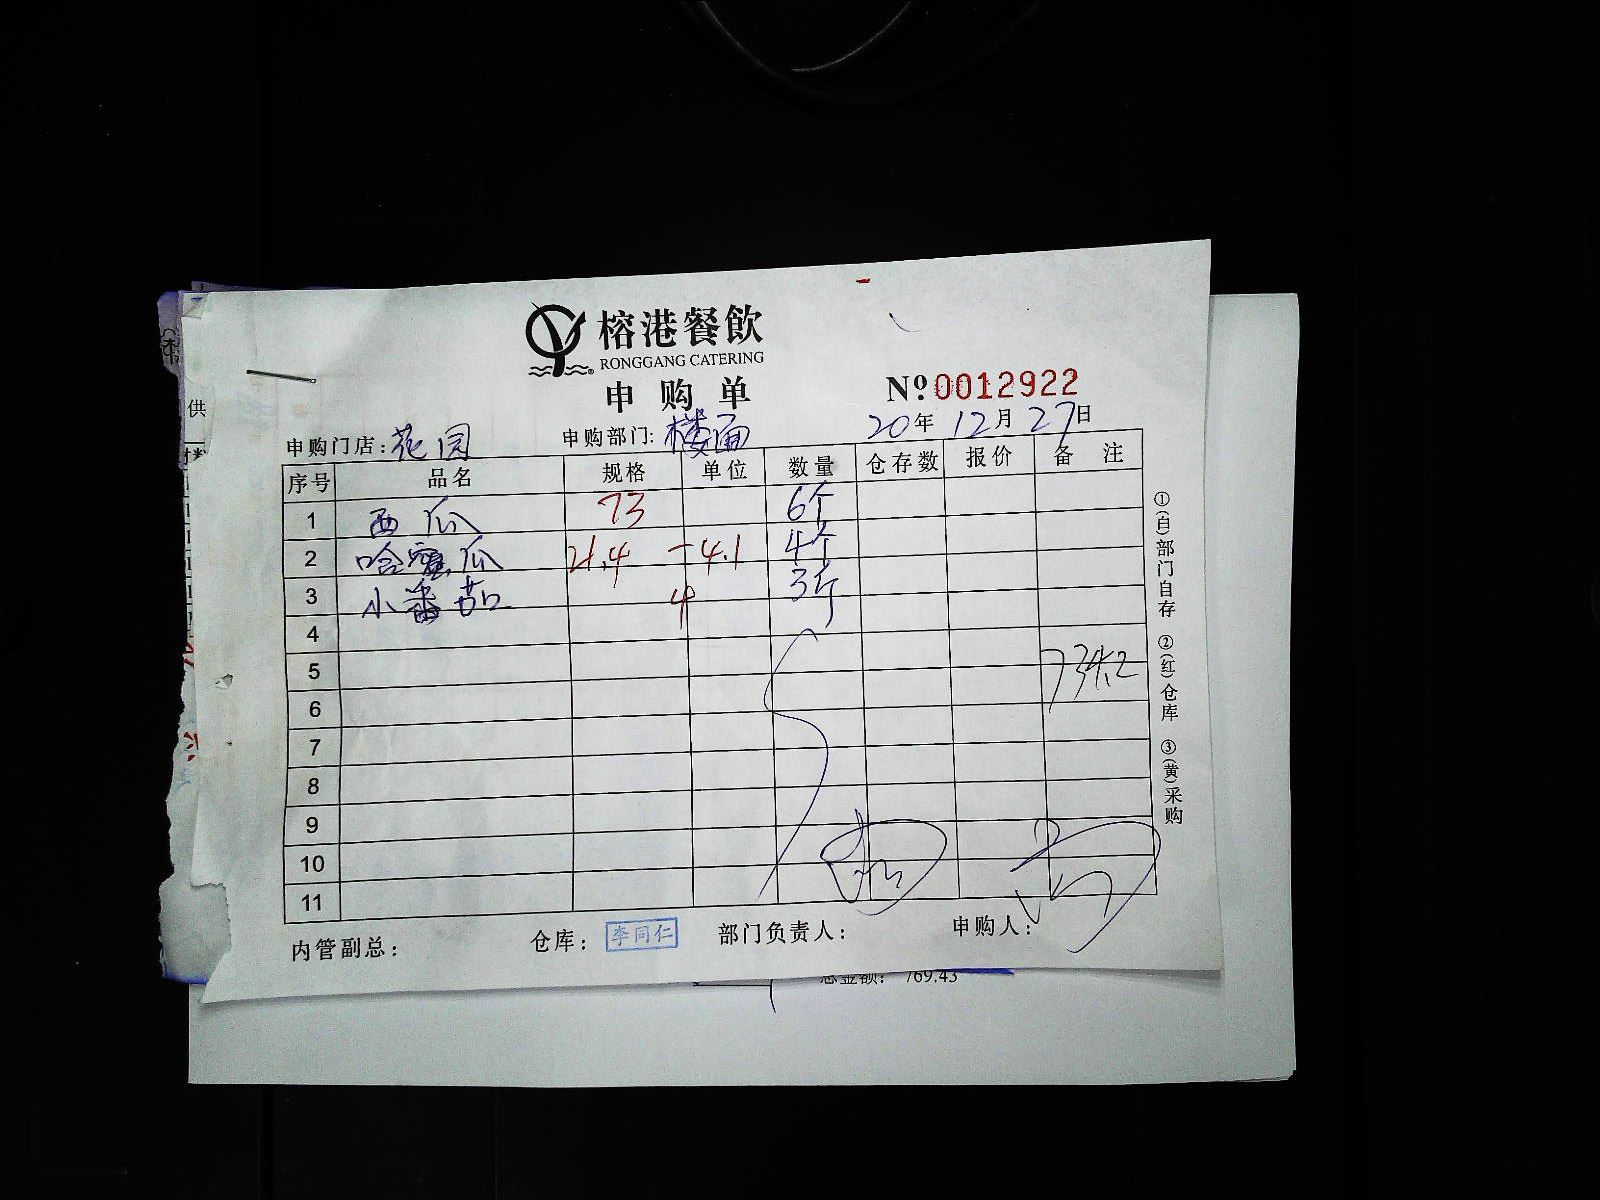 榕港餐飲
RONGGANG CATERING
申购单
Nº 0012922
申购门店: 花园 申购部门: 楼面 20年12月27日
序号 品名 规格 单位 数量 仓存数 报价 备注
1 西瓜 73 6个
2 哈密瓜 21.4 -4.1 4个
3 小番茄 4 3斤
4
5 734.2
6
7
8
9
10
11
内管副总: 仓库: 李同仁 部门负责人: 申购人:
①(白)部门自存 ②(红)仓库 ③(黄)采购
供
总金额: 769.43